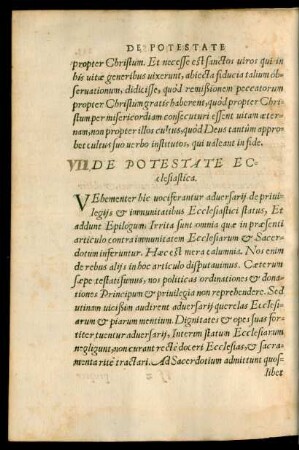 DE POTESTATE
propter Christum. Et necesse est sanctos uiros qui in
his uitæ generibus uixerunt, abiecta fiducia talium ob
seruationum, didicisse, quòd remissionem peccatorum
propter Christum gratis haberent, quòd propter Chri
stum per misericordiam consecuturi essent uitam æter
nam, non propter illos cultus, quòd Deus tantùm appro
bet cultus suo uerbo institutos, qui ualeant in fide.
VII. DE POTESTATE EC=
clesiastica.
VEhementer hîc uociferantur aduersarij de priui
legijs & immunitatibus Ecclesiastici status, Et
addunt Epilogum: Irrita sunt omnia quæ in præsenti
articulo contra immunitatem Ecclesiarum & Sacer=
dotum inferuntur. Hæc est mera calumnia. Nos enim
de rebus alijs in hoc articulo disputauimus. Cæterum
sæpe testati sumus, nos politicas ordinationes & dona=
tiones Principum & priuilegia non reprehendere. Sed
utinam uicißim audirent aduersarij querelas Ecclesi=
arum & piarum mentium. Dignitates & opes suas for=
titer tuentur aduersarij. Interim statum Ecclesiarum
negligunt, non curant rectè doceri Ecclesias, & sacra=
menta ritè tractari. Ad Sacerdotium admittunt quos=
libet